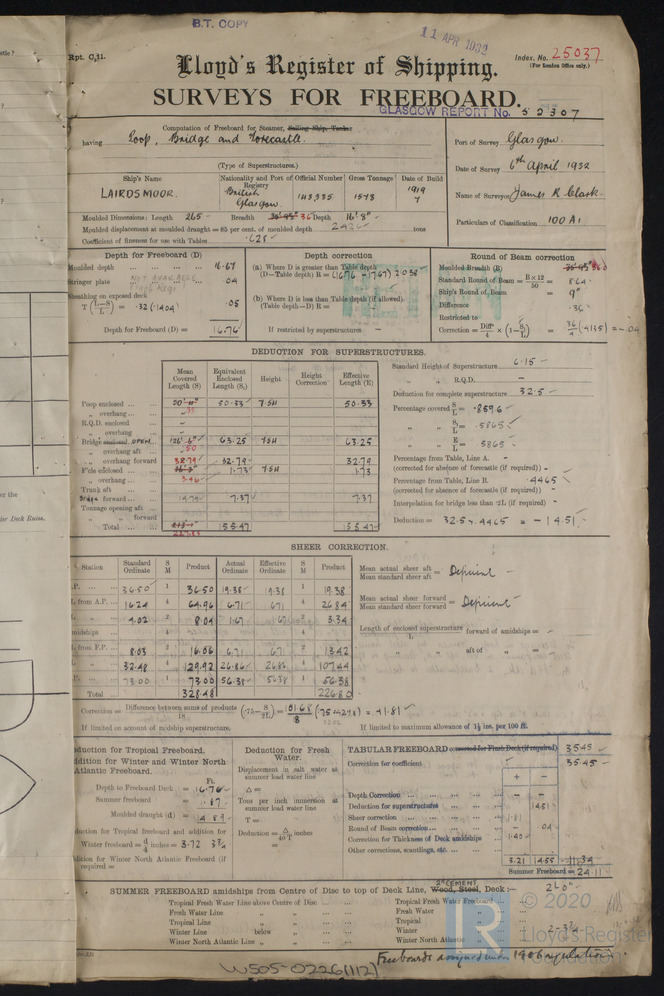 B.T. COPY
11 APR 1932
Rpt. C.11.
Index. No. 25037
(For London Office only.)
Lloyd's Register of Shipping.
SURVEYS FOR FREEBOARD.
GLASGOW REPORT No. 52307
Computation of Freeboard for Steamer, Sailing Ship, Tanker
having Poop, Bridge and Forecastle.
(Type of Superstructures.)
Port of Survey Glasgow.
Date of Survey 6th April 1932
Name of Surveyor James R Clark
Particulars of Classification 100 A1
Ship's Name
Nationality and Port of Registry
Official Number
Gross Tonnage
Date of Build
LAIRDSMOOR.
British
Glasgow.
1578
1919
Moulded Dimensions: Length 265 Breadth 36 Depth 16'8"
Moulded displacement at moulded draught = 85 per cent. of moulded depth tons
Coefficient of fineness for use with Tables .628
Depth for Freeboard (D)
Moulded depth 16.67
Stringer plate .04
Sheathing on exposed deck
T (L-S/L) = .05
Depth for Freeboard (D) = 16.76
Depth correction
(a) Where D is greater than Table depth
(D-Table depth) R =
(b) Where D is less than Table depth (if allowed)
(Table depth-D) R =
If restricted by superstructures
Round of Beam correction
Moulded Breadth (B)
Standard Round of Beam = B×12/50 = 8.64
Ship's Round of Beam = 9"
Difference .36
Restricted to
Correction = Diff/4 × (1-S/L) = = -.04
DEDUCTION FOR SUPERSTRUCTURES.
Mean Covered Length (S)
Equivalent Enclosed Length (S1)
Height
Height Correction
Effective Length (E)
Poop enclosed 50.33 7.5H 50.33
" overhang
R.Q.D. enclosed
" overhang
Bridge enclosed OPEN 126'.6" 63.25 7.5H 63.25
" overhang aft
" overhang forward 32.79 32.79
F'cle enclosed 1.73 7.5H 1.73
" overhang
Trunk aft
" forward 14.75 7.37 7.37
Tonnage opening aft
" " forward
Total 155.47 155.47
Standard Height of Superstructure 6.15
" " R.Q.D. -
Deduction for complete superstructure 32.5
Percentage covered S/L = .8596
" S1/L = .5865
" E/L = .5865
Percentage from Table, Line A.
(corrected for absence of forecastle (if required))
Percentage from Table, Line B. .4465
(corrected for absence of forecastle (if required))
Interpolation for bridge less than .2L (if required)
Deduction = 32.5 x .4465 = -14.51
SHEER CORRECTION.
Station
Standard Ordinate
S M
Product
Actual Ordinate
Effective Ordinate
S M
Product
.P. 36.50 1 36.50 19.38 19.38 1 19.38
L from A.P. 16.24 4 64.96 6.71 6.71 4 26.84
4.02 2 8.04 1.67 1.67 2 3.34
midships 4 4
L from F.P. 8.03 2 16.06 6.71 6.71 2 13.42
32.48 4 129.92 26.86 26.86 4 107.44
.P. 73.00 1 73.00 56.38 56.38 1 56.38
Total 328.48 226.80
Mean actual sheer aft / Mean standard sheer aft = Deficient
Mean actual sheer forward / Mean standard sheer forward = Deficient
Length of enclosed superstructure / L forward of amidships =
" " aft of " =
Correction = Difference between sums of products / 18 (.75 - S/2L) =
If limited on account of midship superstructure.
If limited to maximum allowance of 1½ ins. per 100 ft.
duction for Tropical Freeboard.
ddition for Winter and Winter North Atlantic Freeboard.
Ft.
Depth to Freeboard Deck = 16.76
Summer freeboard = 1.87
Moulded draught (d) = 14.89
duction for Tropical freeboard and addition for
Winter freeboard = d/4 inches = 3.72 3¾
ddition for Winter North Atlantic Freeboard (if required =
Deduction for Fresh Water.
Displacement in salt water at summer load water line
Δ =
Tons per inch immersion at summer load water line
T =
Deduction = Δ/40T inches
=
TABULAR FREEBOARD corrected for Flush Deck (if required) 35.45
Correction for coefficient 35.45
+ -
Depth Correction
Deduction for superstructures 14.51
Sheer correction 1.81
Round of Beam correction .04
Correction for Thickness of Deck amidships 1.40
Other corrections, scantlings, etc.
3.21 14.55 -11.34
Summer Freeboard = 24.11
SUMMER FREEBOARD amidships from Centre of Disc to top of Deck Line, Wood, Steel, Deck:— 2'.0"
2" CEMENT
Tropical Fresh Water Line above Centre of Disc
Fresh Water Line " "
Tropical Line " "
Winter Line below "
Winter North Atlantic Line " "
Tropical Fresh Water Freeboard
Fresh Water "
Tropical "
Winter "
Winter North Atlantic "
Freeboards assigned under 1906 regulations.
W505-0226(1/2)
LR
© 2020
Lloyd's Register
Foundation